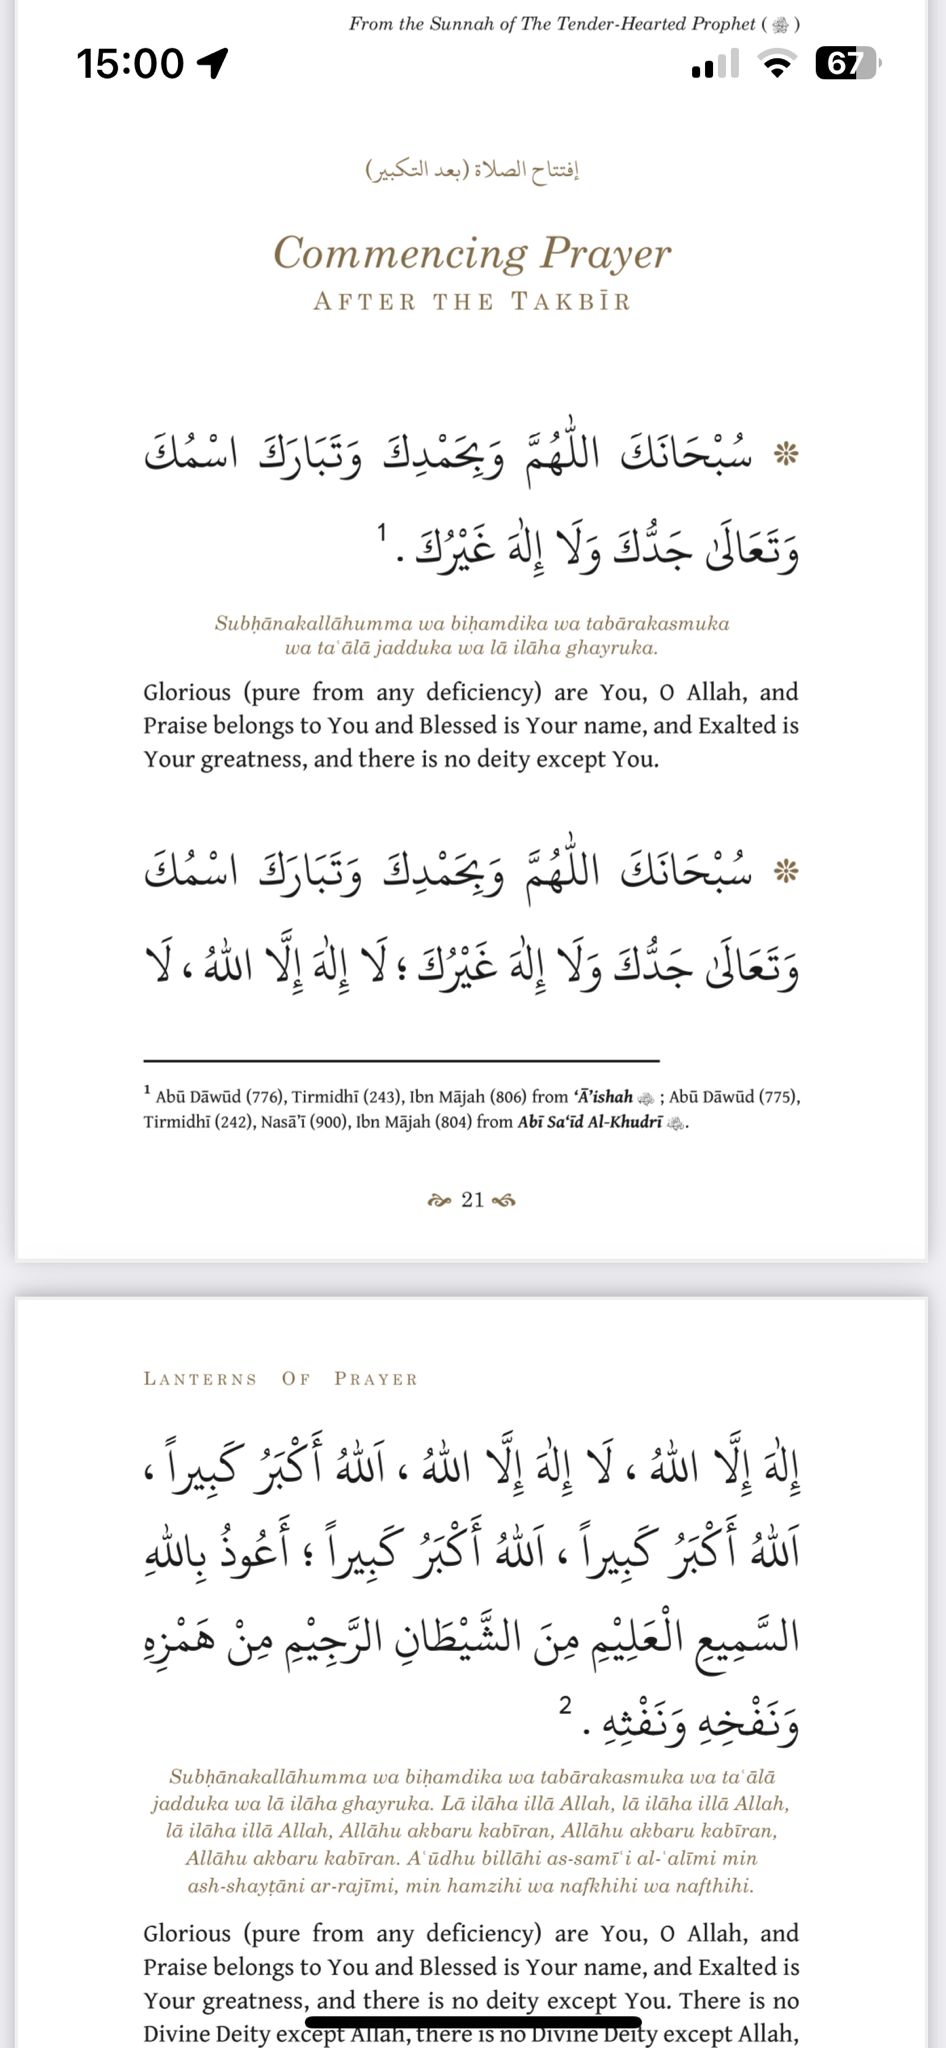 From the Sunnah of The Tender-Hearted Prophet (ﷺ)
15:00
67
إفتتاح الصلاة (بعد التكبير)
Commencing Prayer
AFTER THE TAKBĪR
سُبْحَانَكَ اللّٰهُمَّ وَبِحَمْدِكَ وَتَبَارَكَ اسْمُكَ
وَتَعَالَىٰ جَدُّكَ وَلَا إِلٰهَ غَيْرُكَ . 1
Subḥānakallāhumma wa biḥamdika wa tabārakasmuka
wa taʿālā jadduka wa lā ilāha ghayruka.
Glorious (pure from any deficiency) are You, O Allah, and
Praise belongs to You and Blessed is Your name, and Exalted is
Your greatness, and there is no deity except You.
سُبْحَانَكَ اللّٰهُمَّ وَبِحَمْدِكَ وَتَبَارَكَ اسْمُكَ
وَتَعَالَىٰ جَدُّكَ وَلَا إِلٰهَ غَيْرُكَ ؛ لَا إِلٰهَ إِلَّا اللهُ ، لَا
1 Abū Dāwūd (776), Tirmidhī (243), Ibn Mājah (806) from ‘Ā’ishah ; Abū Dāwūd (775),
Tirmidhī (242), Nasā’ī (900), Ibn Mājah (804) from Abī Sa‘īd Al-Khudrī .
21
LANTERNS OF PRAYER
إِلٰهَ إِلَّا اللهُ ، لَا إِلٰهَ إِلَّا اللهُ ، اَللهُ أَكْبَرُ كَبِيراً ،
اَللهُ أَكْبَرُ كَبِيراً ، اَللهُ أَكْبَرُ كَبِيراً ؛ أَعُوذُ بِاللهِ
السَّمِيعِ الْعَلِيْمِ مِنَ الشَّيْطَانِ الرَّجِيْمِ مِنْ هَمْزِهِ
وَنَفْخِهِ وَنَفْثِهِ . 2
Subḥānakallāhumma wa biḥamdika wa tabārakasmuka wa taʿālā
jadduka wa lā ilāha ghayruka. Lā ilāha illā Allah, lā ilāha illā Allah,
lā ilāha illā Allah, Allāhu akbaru kabīran, Allāhu akbaru kabīran,
Allāhu akbaru kabīran. Aʿūdhu billāhi as-samīʿi al-ʿalīmi min
ash-shayṭāni ar-rajīmi, min hamzihi wa nafkhihi wa nafthihi.
Glorious (pure from any deficiency) are You, O Allah, and
Praise belongs to You and Blessed is Your name, and Exalted is
Your greatness, and there is no deity except You. There is no
Divine Deity except Allah, there is no Divine Deity except Allah,